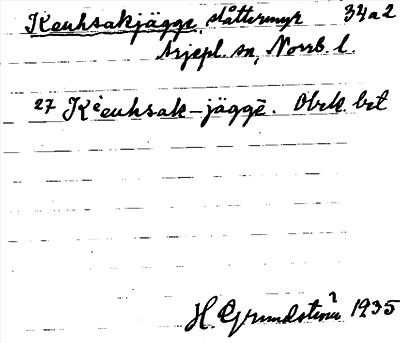 Keuhsakjägge, slåttermyr 34a2
Arjepl. sn, Norrb. l.
27 Kèeuhsak-jäggē. Obrk. brt
H. Grundström 1935